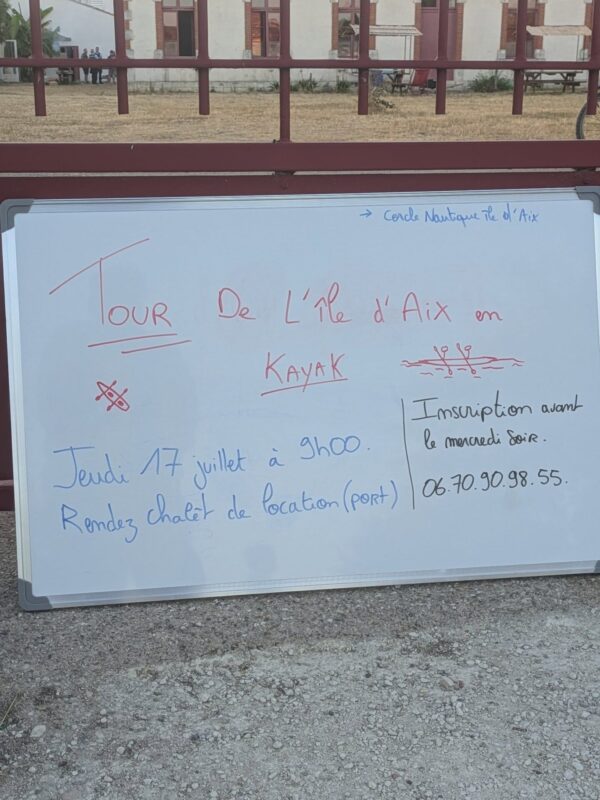 → Cercle Nautique île d'Aix
TOUR De L'île d'Aix en
KAYAK
Jeudi 17 juillet à 9h00.
Rendez chalêt de location (PORT)
Inscription avant
le mercredi soir.
06.70.90.98.55.